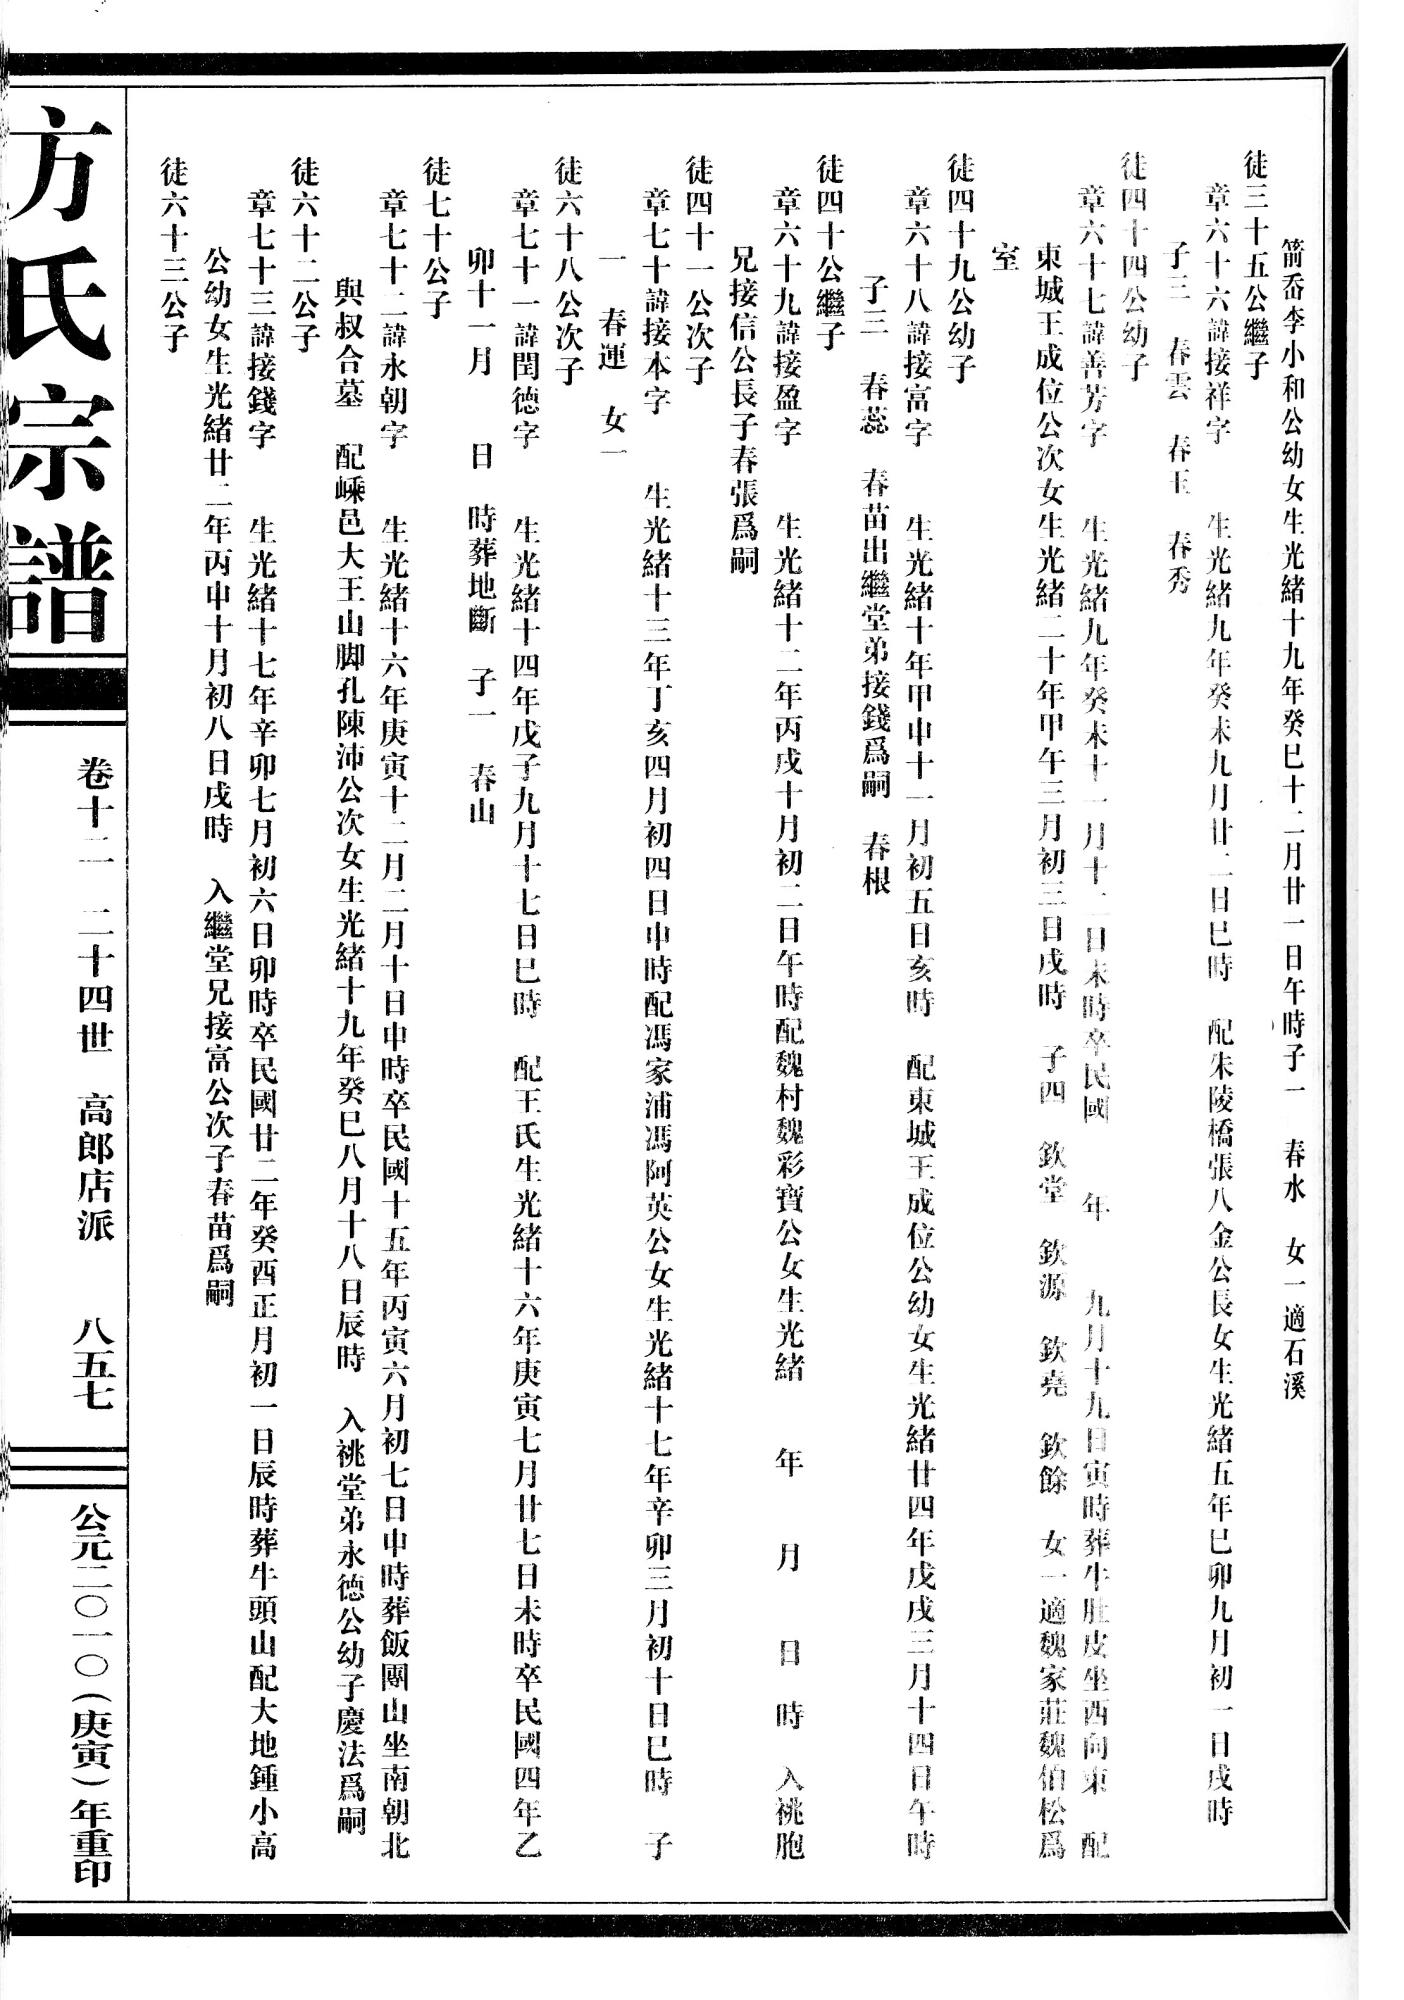 箭嵒李小和公幼女生光緒十九年癸巳十二月廿一日午時子一　春水　女一適石溪
徒三十五公繼子
章六十六諱接祥字　生光緒九年癸未九月廿二日巳時　配朱陵橋張八金公長女生光緒五年己卯九月初一日戌時
子三　春雲　春玉　春秀
徒四十四公幼子
章六十七諱善芳字　生光緒九年癸未十一月十二日未時卒民國　年　九月十九日寅時葬牛肚皮坐西向東　配
東城王成位公次女生光緒二十年甲午三月初三日戌時　子四　欽堂　欽源　欽堯　欽餘　女一適魏家莊魏伯松爲
室
徒四十九公幼子
章六十八諱接富字　生光緒十年甲申十一月初五日亥時　配東城王成位公幼女生光緒廿四年戊戌三月十四日午時
子三　春蕊　春苗出繼堂弟接錢爲嗣　春根
徒四十公繼子
章六十九諱接盈字　生光緒十二年丙戌十月初二日午時配魏村魏彩寶公女生光緒　年　月　日　時　入祧胞
兄接信公長子春張爲嗣
徒四十一公次子
章七十諱接本字　生光緒十三年丁亥四月初四日申時配馮家浦馮阿英公女生光緒十七年辛卯三月初十日巳時　子
一　春運　女一
徒六十八公次子
章七十一諱閏德字　生光緒十四年戊子九月十七日巳時　配王氏生光緒十六年庚寅七月廿七日未時卒民國四年乙
卯十一月　日　時葬地斷　子一　春山
徒七十公子
章七十二諱永朝字　生光緒十六年庚寅十二月二月十日申時卒民國十五年丙寅六月初七日申時葬飯團山坐南朝北
與叔合墓　配嵊邑大王山脚孔陳沛公次女生光緒十九年癸巳八月十八日辰時　入祧堂弟永德公幼子慶法爲嗣
徒六十二公子
章七十三諱接錢字　生光緒十七年辛卯七月初六日卯時卒民國廿二年癸酉正月初一日辰時葬牛頭山配大地鍾小高
公幼女生光緒廿二年丙申十月初八日戌時　入繼堂兄接富公次子春苗爲嗣
徒六十三公子
方氏宗譜
卷十二　二十四世　高郎店派　八五七
公元二〇一〇（庚寅）年重印